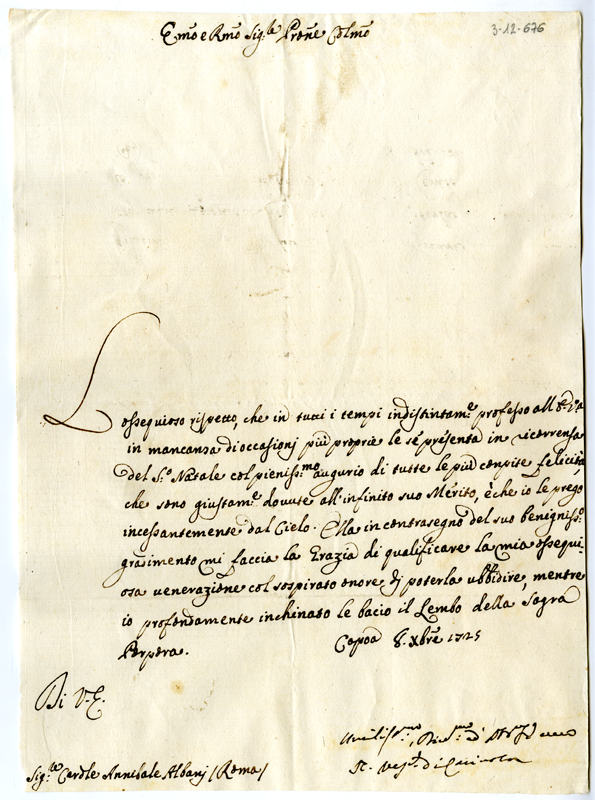 Em̃o e Rm̃o Sig.re Prõne Colm̃o
3-12-676
L'ossequioso rispetto, che in tutti i tempi indistintam.e professo all'E. Va
in mancanza di occasionj più proprie le se presenta in ricorrenza
del S.o Natale col pieniss.mo augurio di tutte le più conpite felicità
che sono giustam.e dovute all'infinito suo Merito, e che io le prego
incessantemente dal Cielo. Ella in contrasegno del suo benigniss.o
gradimento mi faccia la Grazia di qualificare la mia ossequi-
osa venerazione col sospirato onore dj poterla ubbidire, mentre
io profondamente inchinato le bacio il Lembo della Sagra
Porpora. Capoa 8. Xbre 1725
Di V. E.
Umiliss.mo, Div.mo ed
Sig.re Cardle Annibale Albanj (Roma)